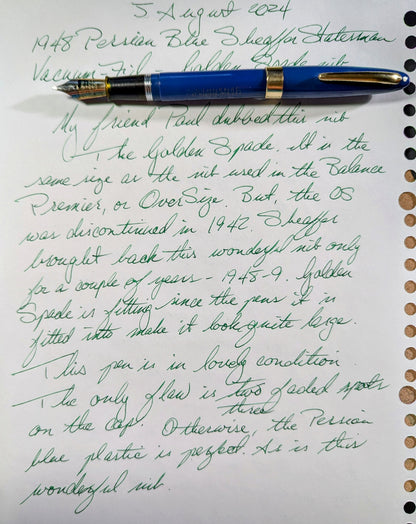 5 August 2024
1948 Persian Blue Sheaffer Statesman
Vacuum-Fil - Golden Spade nib
My friend Paul dubbed this nib
The Golden Spade. It is the
same size as the nib used in the Balance
Premier, or OverSize. But, the OS
was discontinued in 1942. Sheaffer
brought back this wonderful nib only
for a couple of years - 1948-9. Golden
Spade is fitting since the pens it is
fitted into make it look quite large.
This pen is in lovely condition.
The only flaw is two faded spots
three
on the cap. Otherwise, the Persian
blue plastic is perfect. As is this
wonderful nib.